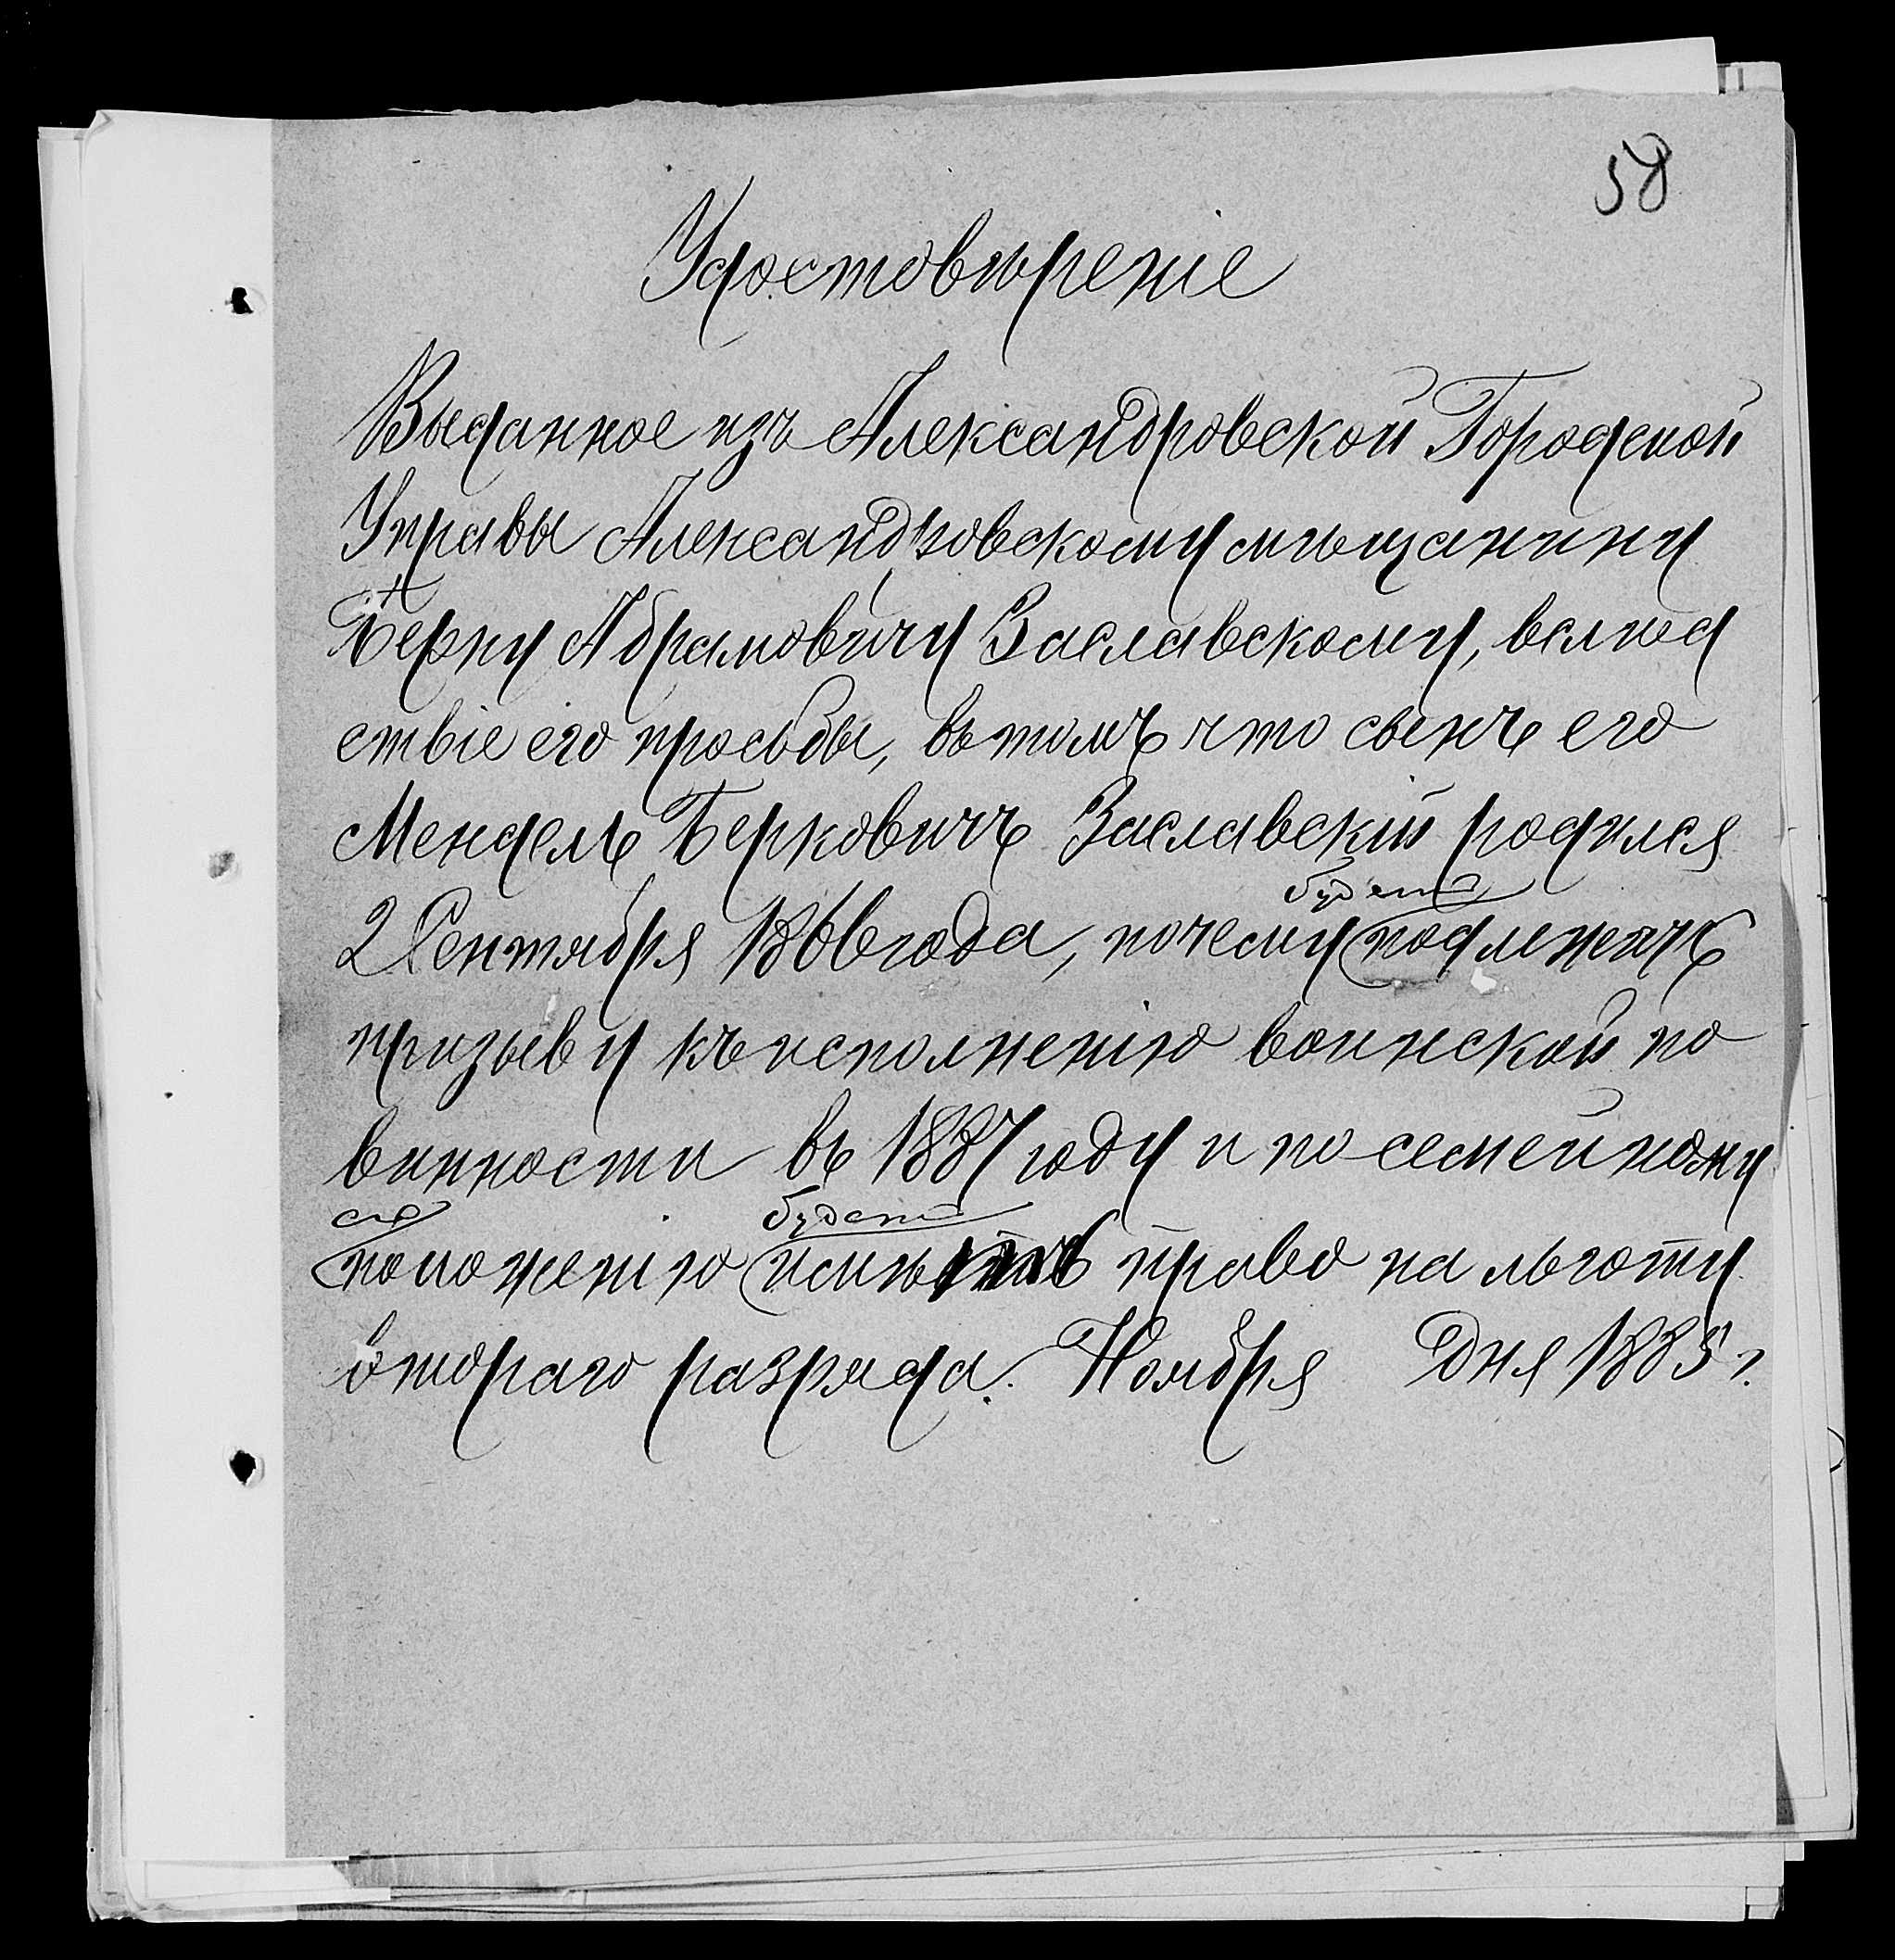 58
Удостовѣреніе
Выданное изъ Александровской Городской
Управы Александровскому мѣщанину
Берку Абрамовичу Заславскому, вслѣд
ствіе его просьбы, въ томъ что сынъ его
Мендель Берковичъ Заславскій родился
будетъ
2 Сентября 1866 года, почему подлежать
призыву къ исполненію воинской по
винности въ 1887 году и по семейному
его будетъ
положенію имѣть право на льготу
втораго разряда. Ноября дня 1885 г.